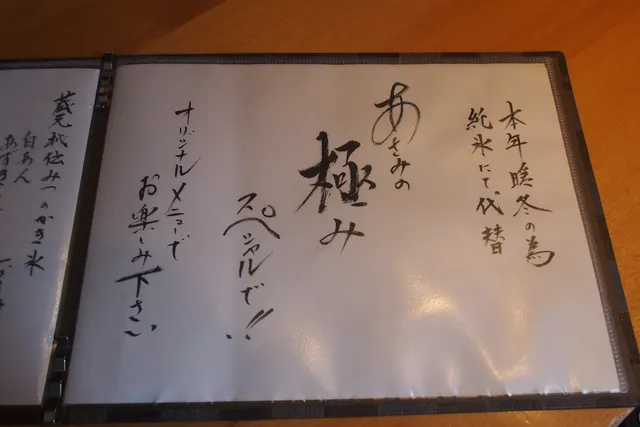 本年暖冬の為
純氷にて代替
あさみの
極み
スペシャルで!!
オリジナルメニューで
お楽しみ下さい
蔵元秘伝みつのかき氷
白あん
あずき